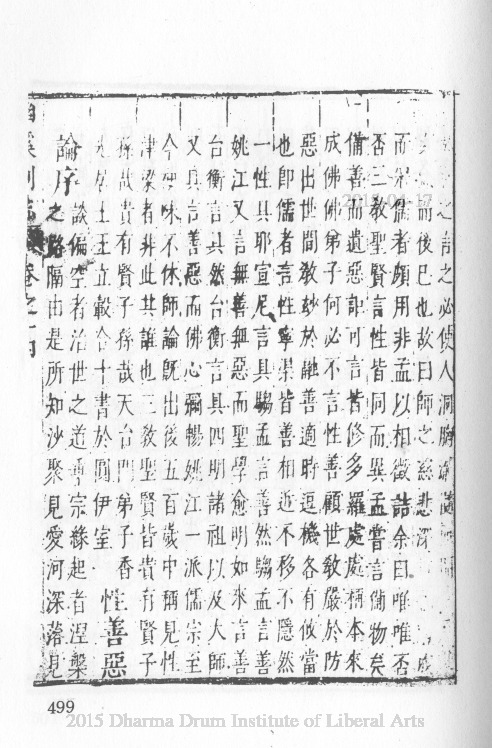 之言之必使人洞胸
而後已也故曰師之慈悲深
而宋儒者頗用非孟以相徵詰余曰唯唯否
否三教聖賢言性皆同而異孟嘗言備物矣
備善而遺惡詎可言皆修多羅處處稱本來
成佛佛弟子何必不言性善顧世教嚴於防
惡出世間教妙於融善適時逗機各有攸當
也即儒者言性寧渠皆善相近不移不隱然
一性具耶宣尼言具鄒孟言善然鄒孟言善
姚江又言無善無惡而聖學愈明如來言善
台衡言具然台衡言具四明諸祖以及大師
又具言善惡而佛心彌暢姚江一派儒宗至
今味不休師論既出後五百歲中稱見性
津梁者非此其誰也三教聖賢皆貴有賢子
孫故貴有賢子孫哉天台門弟子香
居士王立轂合十書於圓伊室
性善惡
論序
談偏空者治世之道乖宗緣起者涅槃
之路隔由是所知沙聚見愛河深蕩見
卷之十四
499
2015 Dharma Drum Institute of Liberal Arts